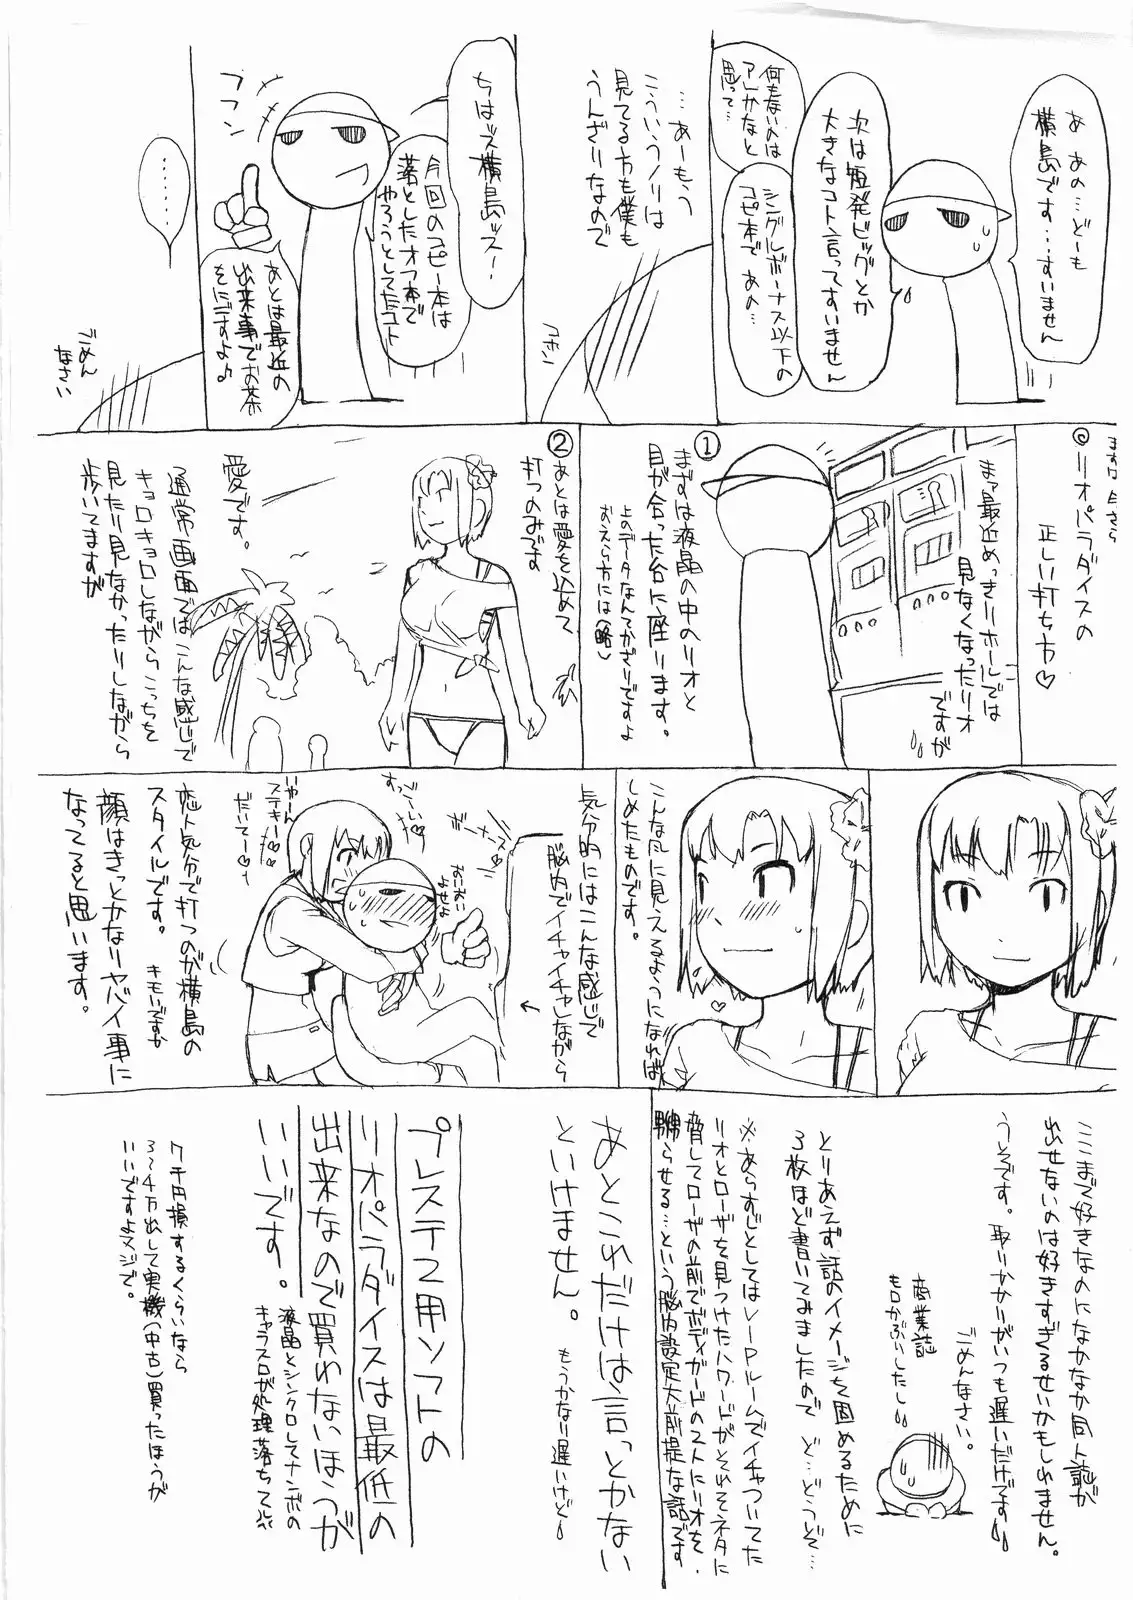 あ あの…どーも
横島です…すいません
次は短発ビッグとか
大きなコト言ってすいません
何もないのは
アレかなと
思って…
シングルボーナス以下の
コピ本で あの…
…あーもう
こういうノリは
見てる方も僕も
うんざりなので
コホン
ちはッス横島ッス!
今回のコピー本は
落としたオフ本で
やろうとしてたコト
フフン
あとは最近の
出来事でお茶
をにごすよ♪
………
ごめん
なさい
まずは今さら
◎リオパラダイスの
正しい打ち方♡
まァ最近めっきりホールでは
見なくなったリオ
ですが
①
まずは液晶の中のリオと
目が合った台に座ります。
上のデータなんてかざりですよ
おえら方には(略)
②
あとは愛を込めて
打つのみです
愛です。
通常画面ではこんな感じで
キョロキョロしながらこっちを
見たり見なかったりしながら
歩いてますが
こんな風に見えるようになれば
しめたものです。
気分的にはこんな感じで
脳内でイチャイチャしながら
ボーナスっ
すっごーい♡
いやーん
ステキー♡
だいてー♡
恋人気分で打つのが横島の
スタイルです。
キモいですか
顔はきっとかなりヤバイ事に
なってると思います。
ここまで好きなのになかなか同人誌が
出せないのは好きすぎるせいかもしれません。
うそです。取りかかりがいつも遅いだけです
ごめんなさい。
商業誌
もロかぶりしたし
とりあえず話のイメージを固めるために
3枚ほど書いてみましたので ど…どうぞ…
※あらすじとしてはVIPルームでイチャついてた
リオとローザを見つけたハワードがそれをネタに
脅してローザの前でボディガードのストにリオを
嬲らせる…という脳内設定大前提な話です
あとこれだけは言っとかない
といけません。
もうかなり遅いけど
プレステ2用ソフトの
リオパラダイスは最低の
出来なので買わないほうが
いいです。
液晶とシンクロしてナンボの
キャラスロが処理落ちって
7千円損するくらいなら
3〜4万出して実機(中古)買ったほうが
いいですよマジで。